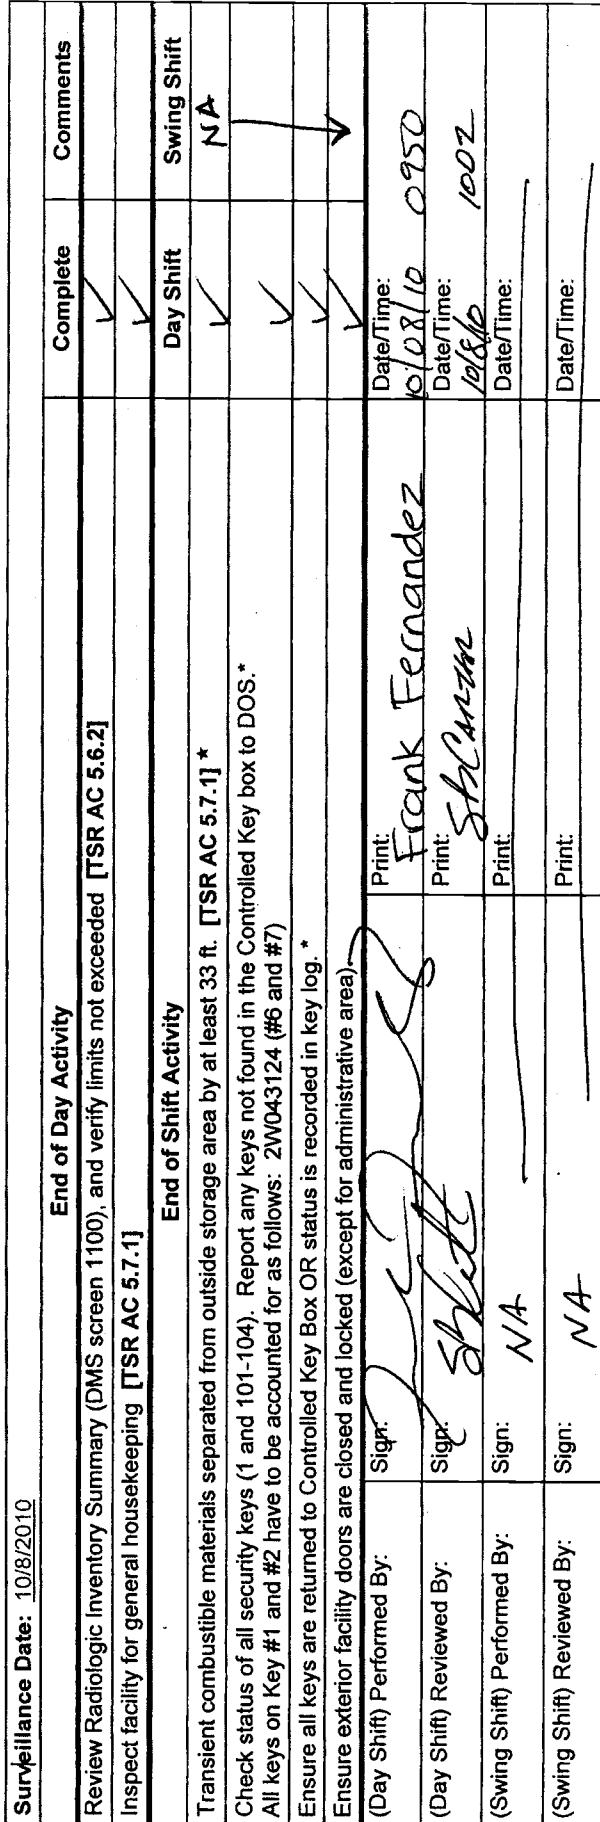 Surveillance Date: 10/8/2010
End of Day Activity Complete Comments
Review Radiologic Inventory Summary (DMS screen 1100), and verify limits not exceeded [TSR AC 5.6.2] ✓
Inspect facility for general housekeeping [TSR AC 5.7.1] ✓
End of Shift Activity Day Shift Swing Shift
Transient combustible materials separated from outside storage area by at least 33 ft. [TSR AC 5.7.1] * ✓ NA
Check status of all security keys (1 and 101-104). Report any keys not found in the Controlled Key box to DOS.*
All keys on Key #1 and #2 have to be accounted for as follows: 2W043124 (#6 and #7) ✓
Ensure all keys are returned to Controlled Key Box OR status is recorded in key log. * ✓
Ensure exterior facility doors are closed and locked (except for administrative area). ✓
(Day Shift) Performed By: Sign: Print: Frank Fernandez Date/Time: 10/08/10 0950
(Day Shift) Reviewed By: Sign: Print: Date/Time: 10/8/10 1002
(Swing Shift) Performed By: Sign: NA Print: Date/Time:
(Swing Shift) Reviewed By: Sign: NA Print: Date/Time: